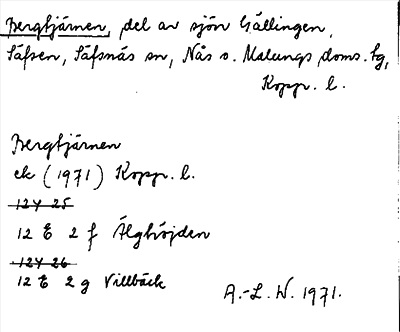 Bergtjärnen, del av sjön Gällingen,
Säfsen, Säfsnäs sn, Nås o. Malungs doms. tg,
Kopp. l.
Bergtjärnen
ek (1971) Kopp. l.
12Y 25
12 E 2 f Älghöjden
12Y 26
12 E 2 g Villbäck
A.-L. W. 1971.